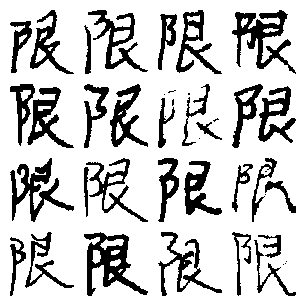 限限限限
限限限限
限限限限
限限限限